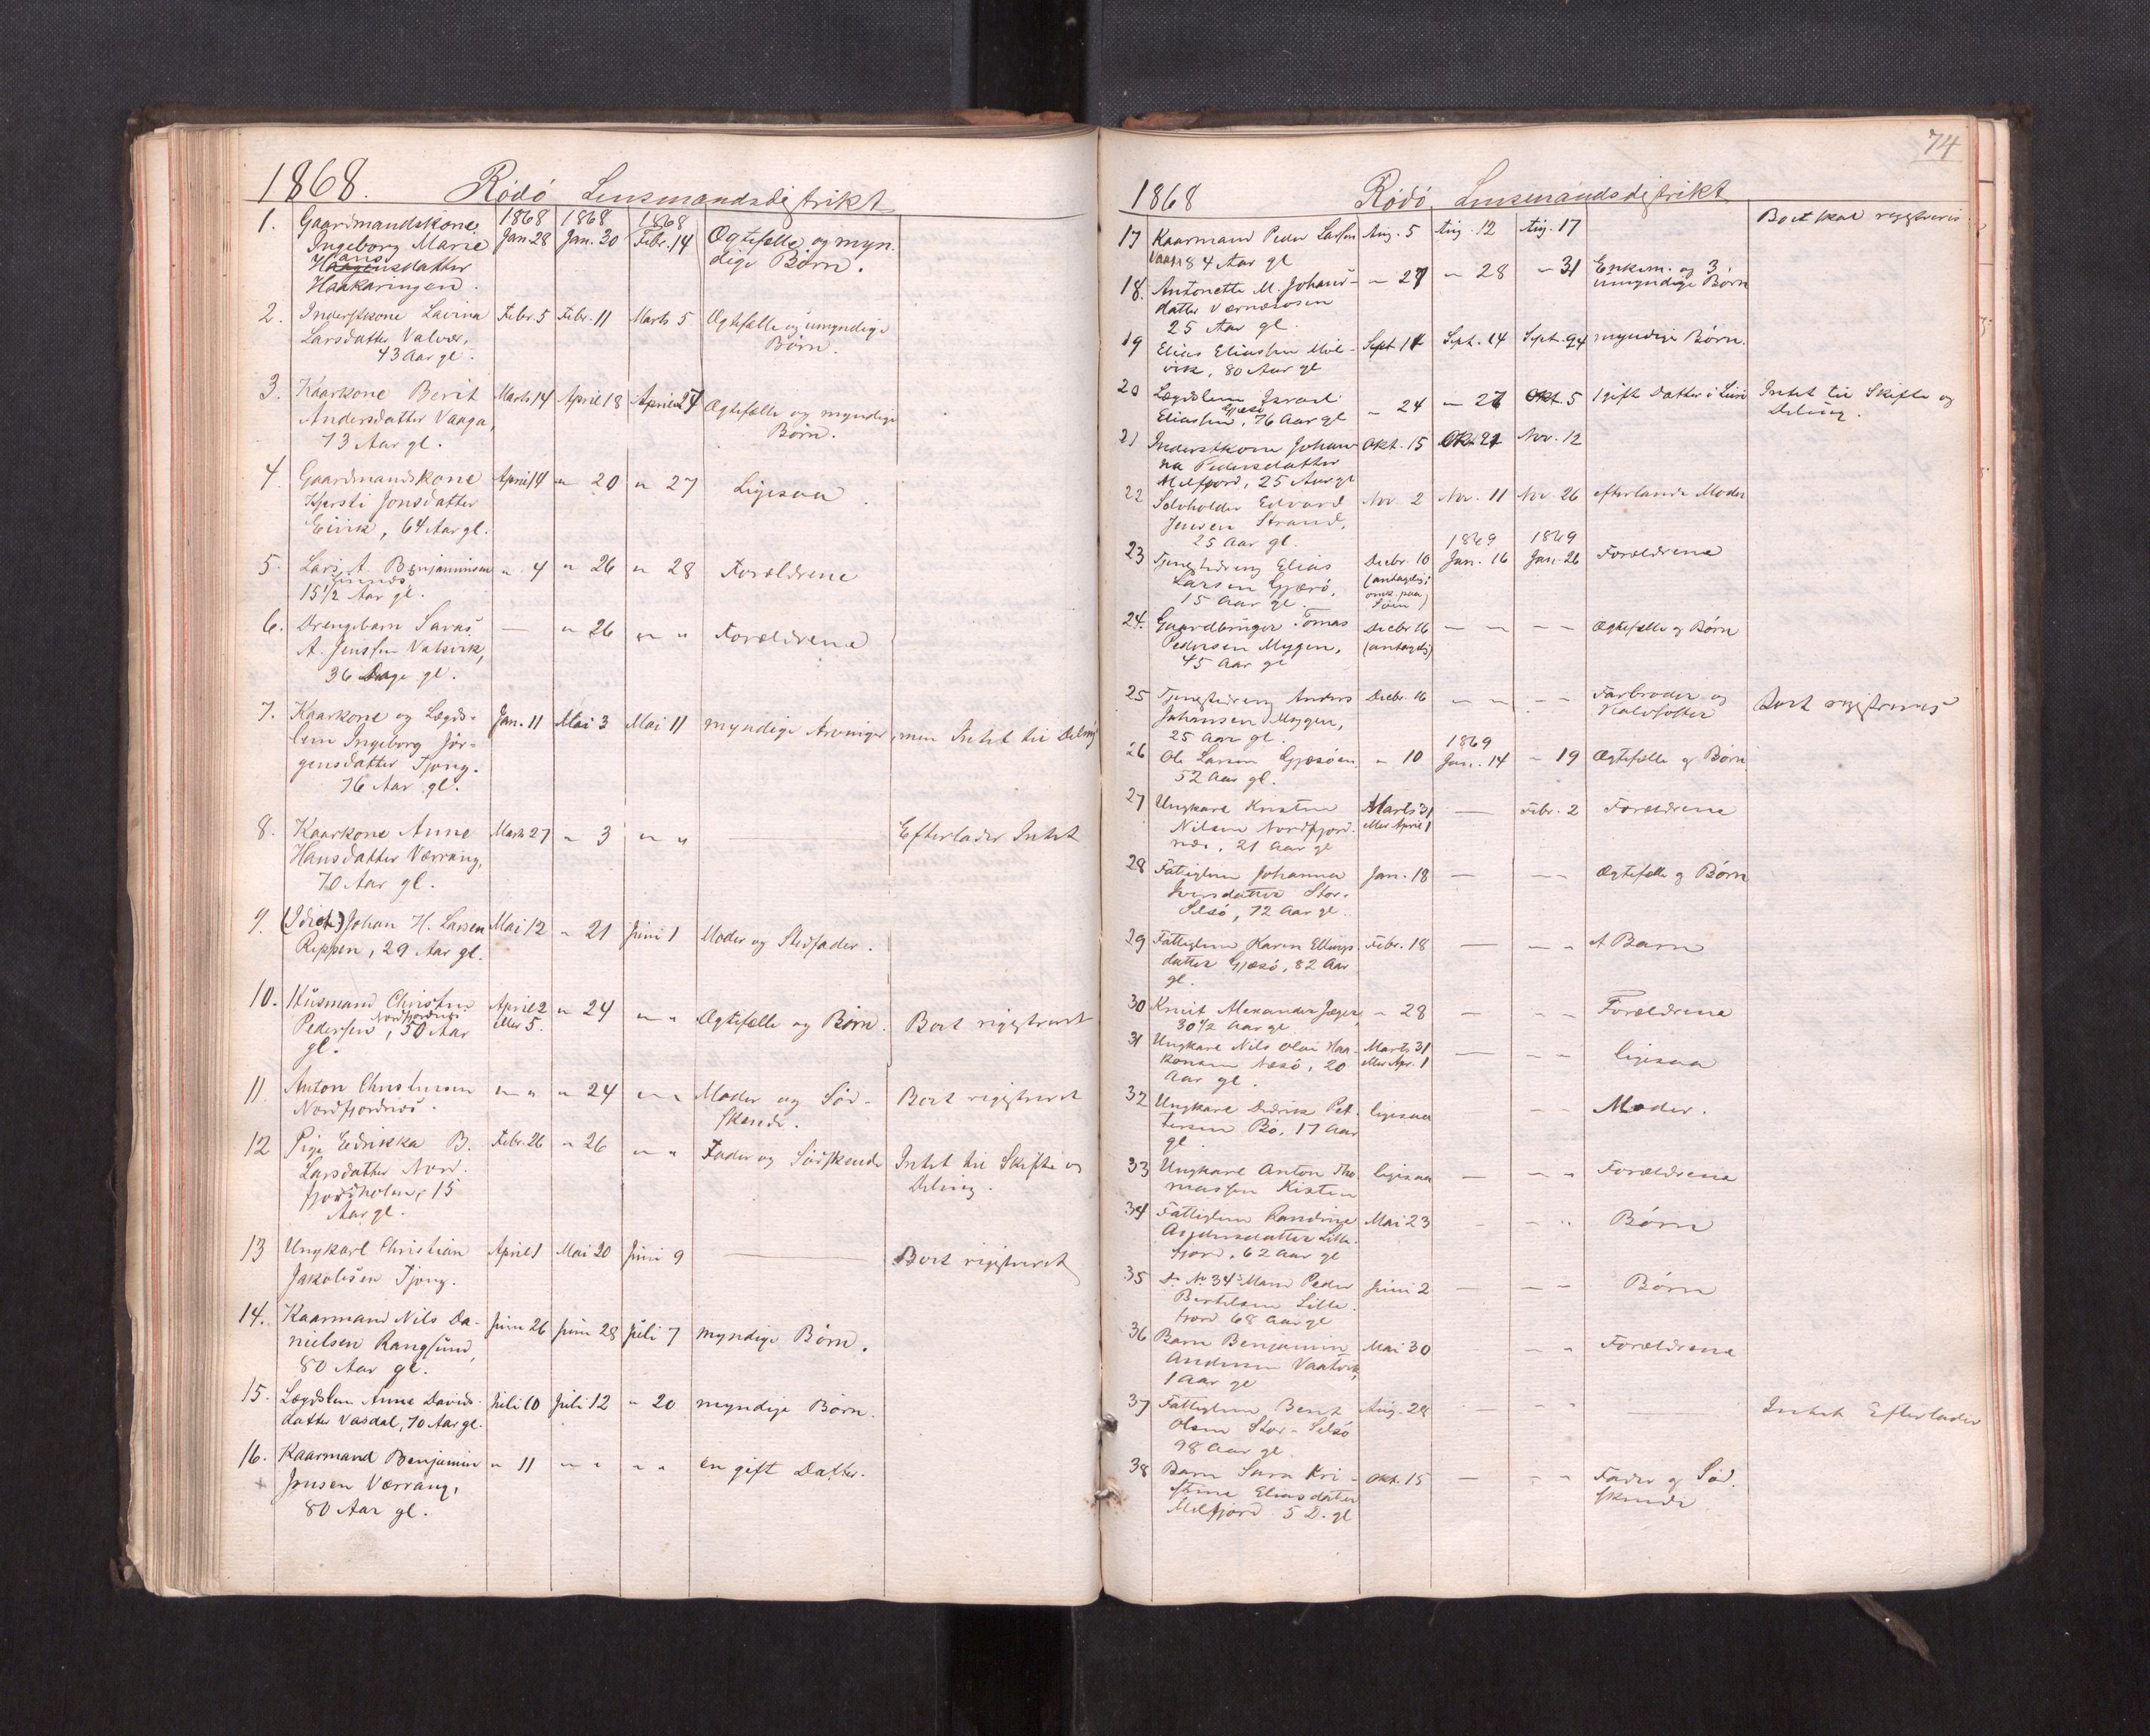 1868. Rödö Lensmandsdistrikt
1. Gaardmandskone 1868 1868 1868
Ingeborg Marie Jan 28 Jan. 30 Febr. 14 Ægtefælle og myn-
ans dige Börn.
Haagensdatter
Haakaringen.
2. Inderstkone Lavina Febr. 5 Febr. 11 Marts 5 Ægtefælle og umyndige
Larsdatter Valvær, Börn.
43 Aar gl.
3. Kaarkone Berit Marts 14 April 18 April 27 Ægtefælle og myndige
Andersdatter Vaaga, Börn.
73 Aar gl.
4. Gaardmandskone April 14 " 20 " 27 Ligesaa
Kjersti Jonsdatter
64 Aar gl.
5. Lars A. Benjaminsen " 4 " 26 " 28 Forældrene
15 1/2 Aar gl.
6. Drengebarn — " 26 " " Forældrene
A. Jenssen Valvik,
36 Dage gl.
7. Kaarkone og Lægds- Jan. 11 Mai 3 Mai 11 myndige Arvinger, men Intet til Deling
lem Ingeborg Jör-
gensdatter Tjong.
76 Aar gl.
8. Kaarkone Anne Marts 27 " 3 " " — Efterlader Intet
Hansdatter Værrang,
70 Aar gl.
9. (Idiot) Johan H. Larsen Mai 12 " 21 Juni 1 Moder og Stedfader.
Reppen, 29 Aar gl.
10. Husmand Christen April 2 " 24 " " Ægtefælle og Börn. Boet registreret
Nordfjordnes eller 5.
Pedersen, 50 Aar
gl.
11. Anton Christensen " " " 24 " " Moder og Söd- Boet registreret
Nordfjordnes. skende.
12 Pige Edrikka B. Febr. 26 " 26 " " Fader og Södskende Intet til Skifte og
Larsdatter Nord- Deling.
fjordholmen, 15
Aar gl.
13 Ungkarl Christian April 1 Mai 20 Juni 9 — Boet registreret
Jakobsen Tjong.
14. Kaarmand Nils Da- Juni 26 Juni 28 Juli 7 myndige Börn.
nielsen Rangsund,
80 Aar gl.
15. Lægdslem Anne Davids- Juli 10 Juli 12 " 20 myndige Börn.
datter Vasdal, 70 Aar gl.
16. Kaarmand Benjamin " 11 " " " " en gift Datter.
Jensen Værrang,
80 Aar gl.
74
1868 Rödö Lensmandsdistrikt
17 Kaarmand Peder Larsen Aug. 5 Aug. 12 Aug. 17 Boet skal registreres
Vaags 84 Aar gl
18. Antonette M. Johans- " 27 " 28 " 31 Enkem. og 3
datter Værnæsosen umyndige Börn
25 Aar gl.
19 Elias Eliassen Mel- Sept 11 Sept. 14 Sept. 24 myndige Börn.
vik, 80 Aar gl
20 Lægdslem Israel " 24 " 27 Okt. 5 1 gift Datter i Live Intet til Skifte og
Eliassen, Gjæsö 76 Aar gl Deling.
21 Inderstkone Johan- Okt. 15 Okt. 27 Nov. 12
na Pedersdatter
Melfjord, 25 Aar gl
22 Selvholder Edvard Nov. 2 Nov. 11 Nov. 26 efterlevende Moder
Jensen Strand,
25 Aar gl. 1869 1869
23 Tjenestedreng Elias Decbr. 10 Jan. 16 Jan. 26 Forældrene
Larsen Gjærö, (antagelig
15 Aar gl. omk. paa
Söen)
24. Gaardbruger Tomas Decbr 16 — — — — Ægtefælle og Börn
Pedersen Mygen, (antagelig)
45 Aar gl
25 Tjenestedreng Anders Decbr. 16 — — — — Farbroder og Boet registreres
Johansen Mygen, Halvsöster
25 Aar gl. 1869
26 Ole Larsen Gjæsöen " 10 Jan. 14 " 19 Ægtefælle og Börn
52 Aar gl.
27 Ungkarl Kristen Marts 31 — Febr. 2 Forældrene
Nilsen Nordfjord- eller April 1
næs, 21 Aar gl
28 Fattiglem Johanna Jan. 18 — — Ægtefælle og Börn
Iversdatter Stor-
Selsö, 72 Aar gl.
29 Fattiglem Karen Ellings- Febr. 18 — — " Barn
datter Gjæsö, 82 Aar
gl.
30 Knut Alexander " 28 — — " Forældrene
30 1/2 Aar gl
31 Ungkarl Nils Olai Haa- Marts 31 — — — ligesaa
konsen Næsö, 20 eller Apr. 1
Aar gl.
32 Ungkarl Didrik Pet- ligesaa — " Moder.
tersen Bö, 17 Aar
gl
33 Ungkarl Anton Tho- ligesaa — — " Forældrene
massen Kisten
34 Fattiglem Randine Mai 23 — — " Börn
Lille-
fjord, 62 Aar gl
35 Do No 34's Mand Peder Juni 2 — — — Börn
Bertelsen Lille-
fjord 68 Aar gl
36 Barn Benjamin Mai 30 — " Forældrene
Andersen Vaatvik,
1 Aar gl
37 Fattiglem Berit Aug. 28 — — " — Intet Efterlader
Olsen Stor-Selsö
98 Aar gl.
38 Barn Sara Kri- Okt. 15 — — " Fader og Söd-
stine Eliasdatter skende.
Melfjord 5 D. gl